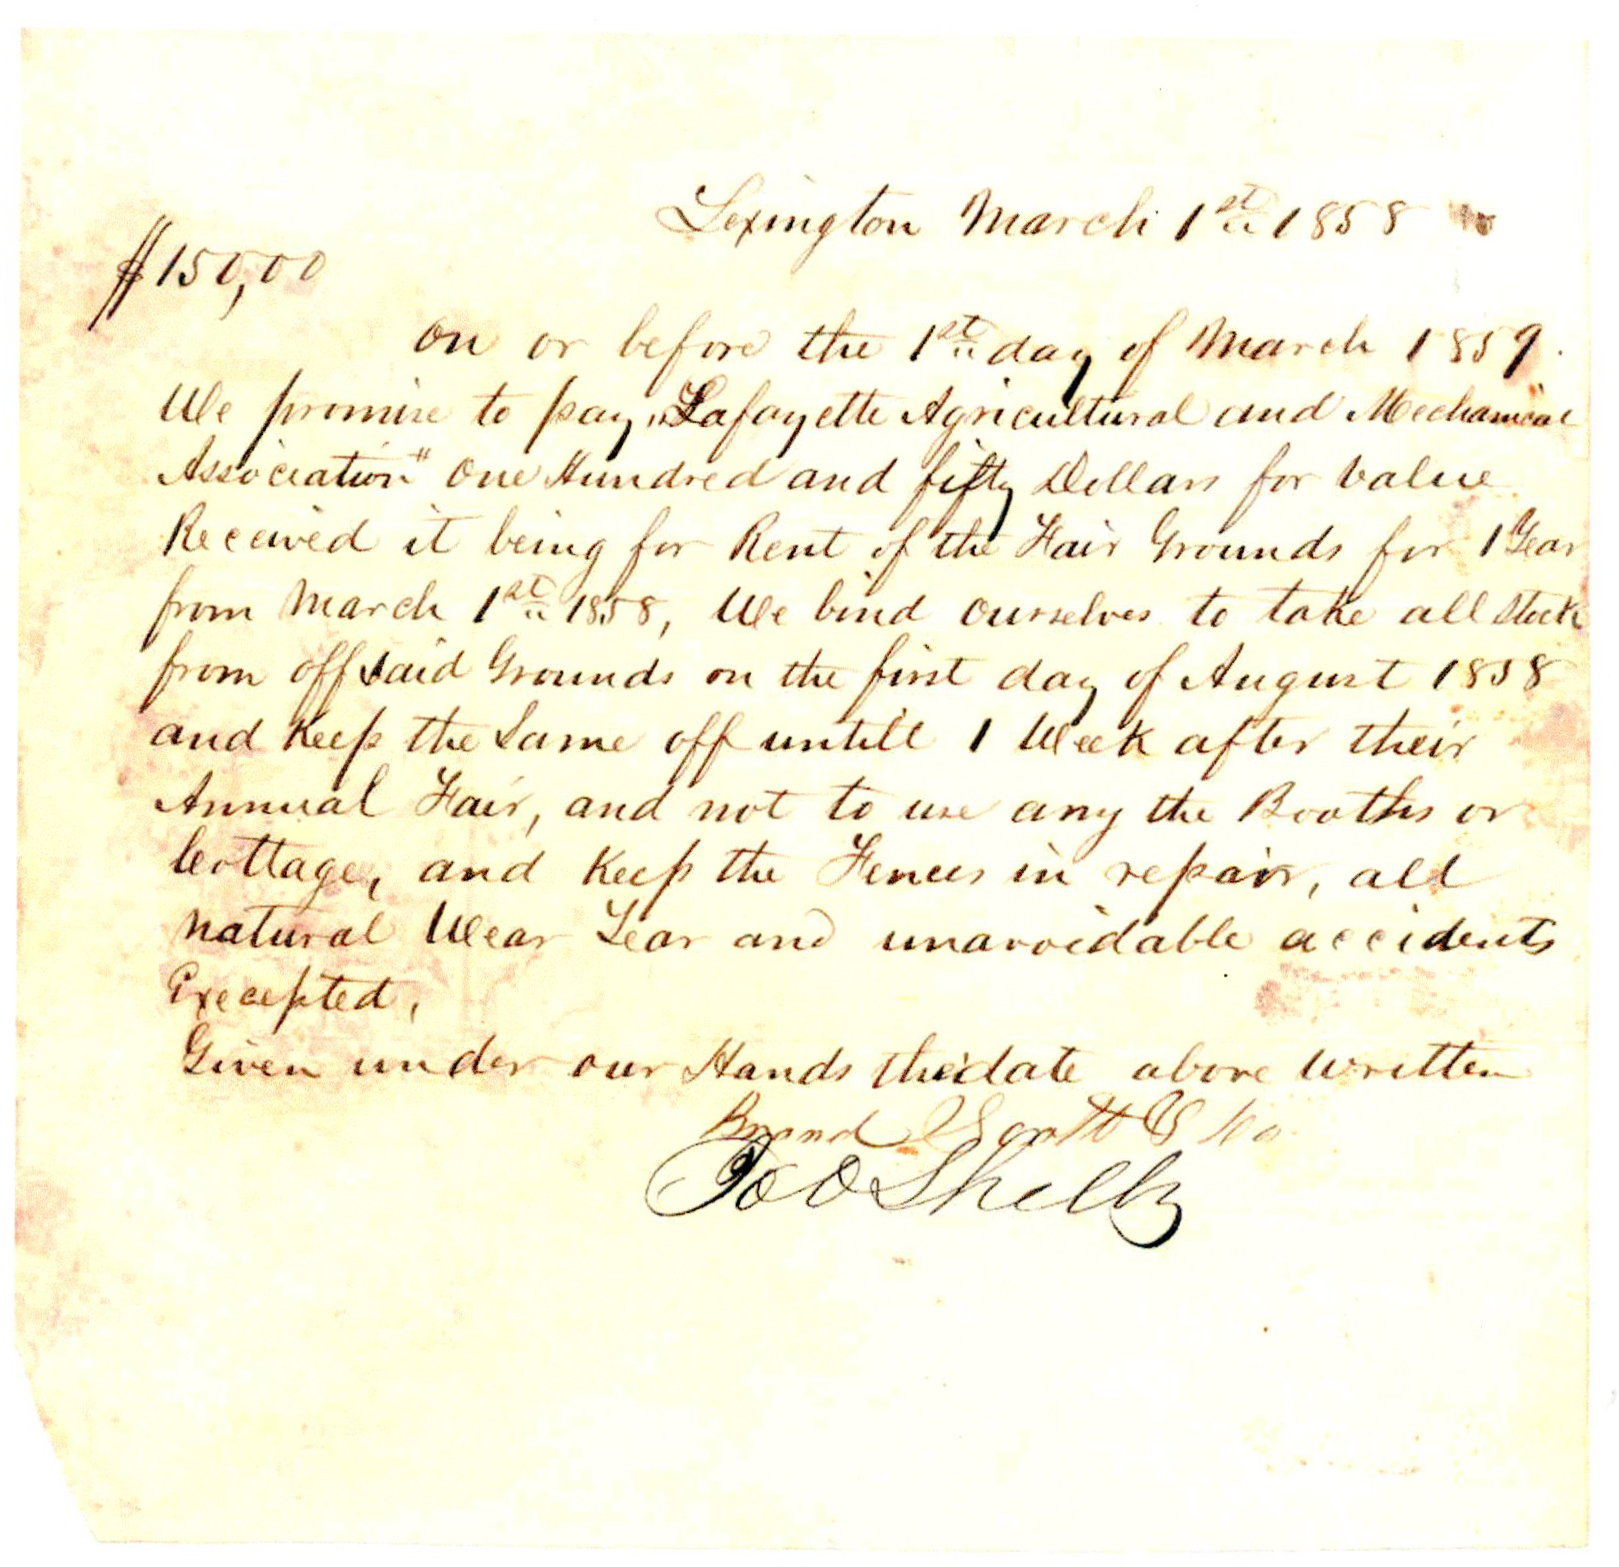 Lexington March 1st 1858
$150,00
On or before the 1st day of March 1859.
We promise to pay "Lafayette Agricultural and Mechanical
Association" One Hundred and fifty Dollars for value
Received it being for Rent of the Fair Grounds for 1 Year
from March 1st 1858, We bind ourselves to take all Stock
from off Said Grounds on the first day of August 1858
and Keep the Same off untill 1 Week after their
Annual Fair, and not to use any the Booths or
Cottage, and Keep the Fences in repair, all
natural Wear Tear and unavoidable accidents
Excepted,
Given under our Hands the date above written
Scott & Co
Jo O Shelby